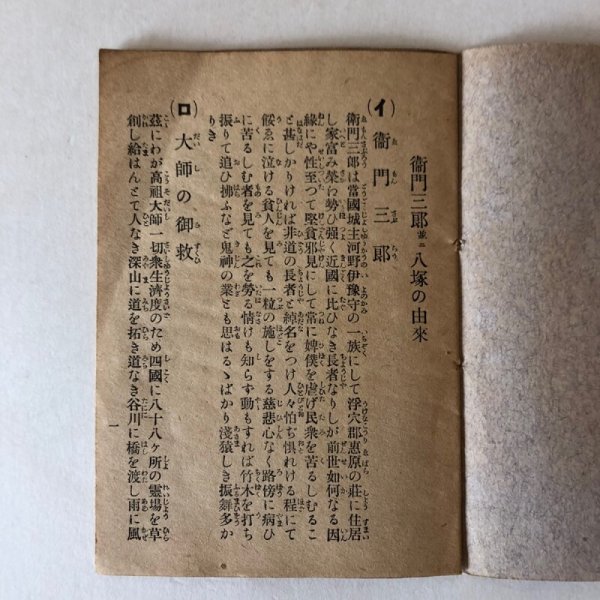 衞門三郎並ニ八塚の由來
(イ)衞門三郎
衞門三郎は當國城主河野伊豫守の一族にして浮穴郡惠原の莊に住居
し家富み榮ね勢ひ强く近國に比ひなき長者なりしが前世如何なる因
緣にや性至つて堅貧邪見にして常に婢僕を虐げ民衆を苦るしむるこ
と甚しかりければ非道の長者と綽名をつけ人々怕ぢ惧れける程にて
餒ゑに泣ける貧人を見ても一粒の施しをする慈悲心なく路傍に病ひ
に苦るしむ者を見ても之を勞る情けも知らず動もすれば竹木を打ち
振りて追ひ拂ふなど鬼神の業とも思はるゝばかり淺猿しき振舞多か
りき
(ロ)大師の御救
茲にわが高祖大師一切衆生濟度のため四國に八十八ヶ所の靈場を草
創し給はんとて人なき深山に道を拓き道なき谷川に橋を渡し雨に風
一